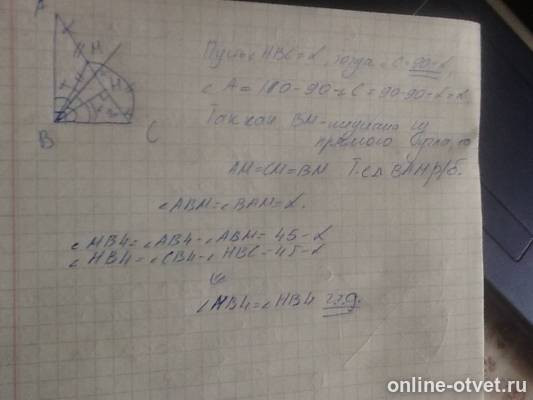 A
M
H
B
C
Пусть ∠HBC=α, тогда ∠C=90-α,
∠A=180-90-∠C=90-90-α=α
Так как BM-медиана из
прямого угла, то
AM=CM=BM Т.е △ВАМ р/б.
∠ABM=∠BAM=α.
∠MB4=∠AB4-∠ABM=45-α
∠HB4=∠CB4-∠HBC=45-α
∠MB4=∠HB4 ч.т.д.
online-otvet.ru